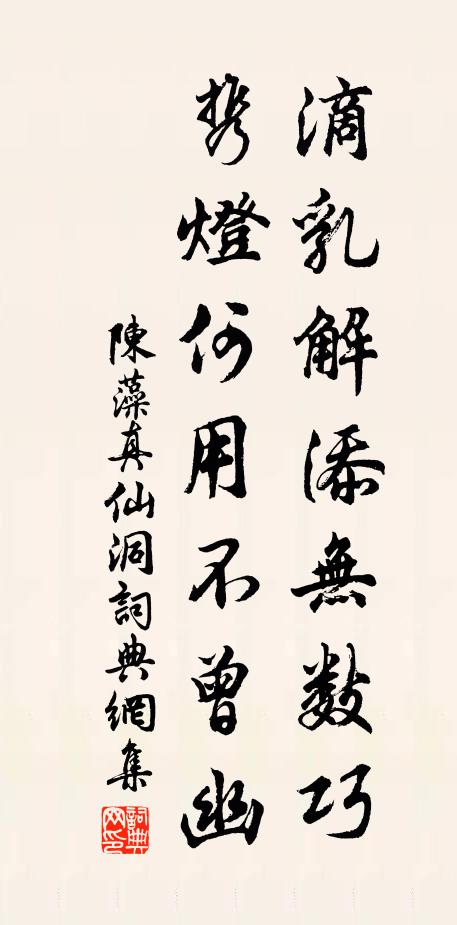 滴乳解添無数巧
携燈何用不曾幽
陳藻真仙洞詞典網集
詞典網印